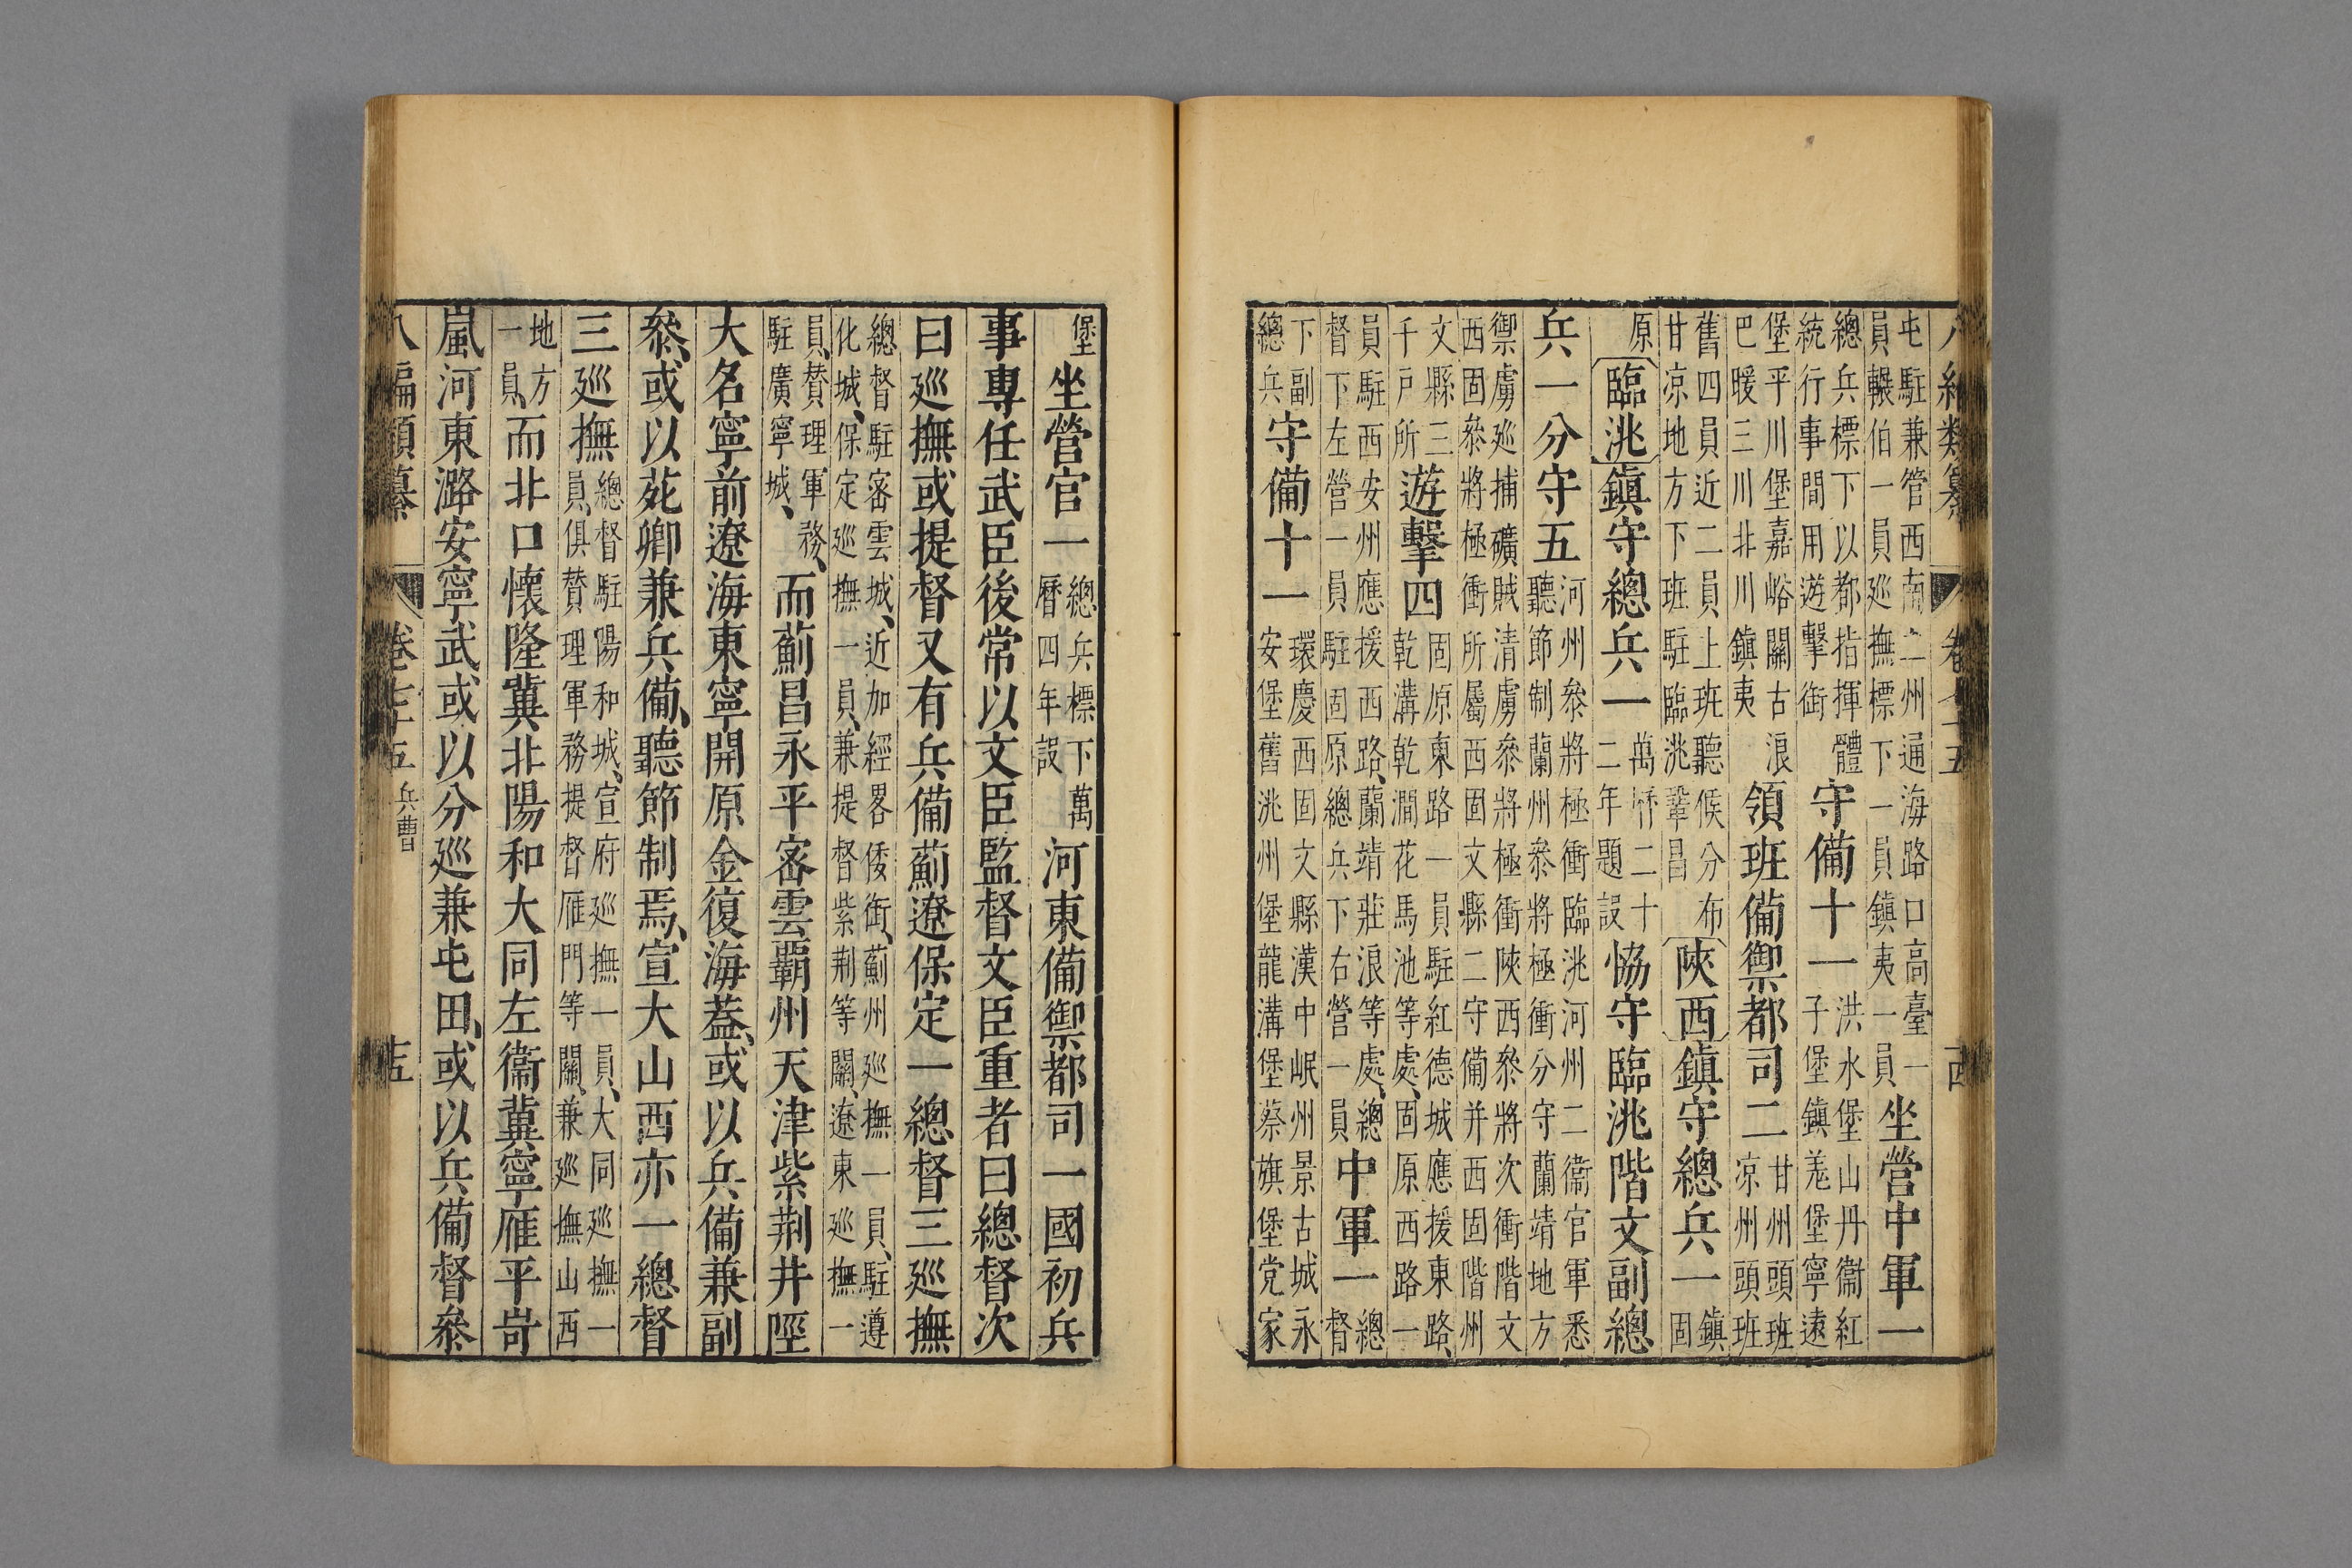 八編類纂 卷七十五
屯駐兼管西南二州通海路口高臺一
員轏伯一員巡撫標下一員鎮夷一員
坐營中軍一
總兵標下以都指揮體
統行事間用遊擊銜
守備十一
洪水堡山丹衞紅
子堡鎮羌堡寧遠
堡平川堡嘉峪關古浪
巴暖三川北川鎮夷
領班備禦都司二
甘州頭班
凉州頭班
舊四員近二員上班聽候分布
甘凉地方下班駐臨洮鞏昌
陝西鎮守總兵一
鎮
固
原
臨洮鎮守總兵一
萬曆二十
二年題設
協守臨洮階文副總
兵一分守五
河州叅將極衝臨洮河州二衞官軍悉
聽節制蘭州叅將極衝分守蘭靖地方
禦虜巡捕礦賊清虜叅將極衝陝西叅將次衝階文
西固叅將極衝所屬西固文縣二守備并西固階州
文縣三
千戸所
遊擊四
固原東路一員駐紅德城應援東路、
乾溝乾澗花馬池等處、固原西路一
員駐西安州應援西路、蘭靖莊浪等處、總
督下左營一員駐固原總兵下右營一員
中軍一
總
督
下副
總兵
守備十一
環慶西固文縣漢中岷州景古城永
安堡舊洮州堡龍溝堡蔡旗堡党家
堡
坐營官一
總兵標下萬
曆四年設
河東備禦都司一國初兵
事專任武臣後常以文臣監督文臣重者曰總督次
曰巡撫或提督又有兵備薊遼保定一總督三巡撫
總督駐密雲城、近加經畧倭銜、薊州巡撫一員、駐遵
化城、保定巡撫一員、兼提督紫荆等關、遼東巡撫一
員、賛理軍務、
駐廣寧城、
而薊昌永平密雲覇州天津紫荆井陘
大名寧前遼海東寧開原金復海蓋、或以兵備兼副
叅、或以苑卿兼兵備、聽節制焉、宣大山西亦一總督
三巡撫
總督駐陽和城、宣府巡撫一員、大同巡撫一
員、俱賛理軍務提督雁門等關、兼巡撫山西
地方
一員、
而北口懷隆冀北陽和大同左衞冀寧雁平岢
嵐河東潞安寧武或以分巡兼屯田、或以兵備督叅
八編類纂 卷七十五 兵曹 十五